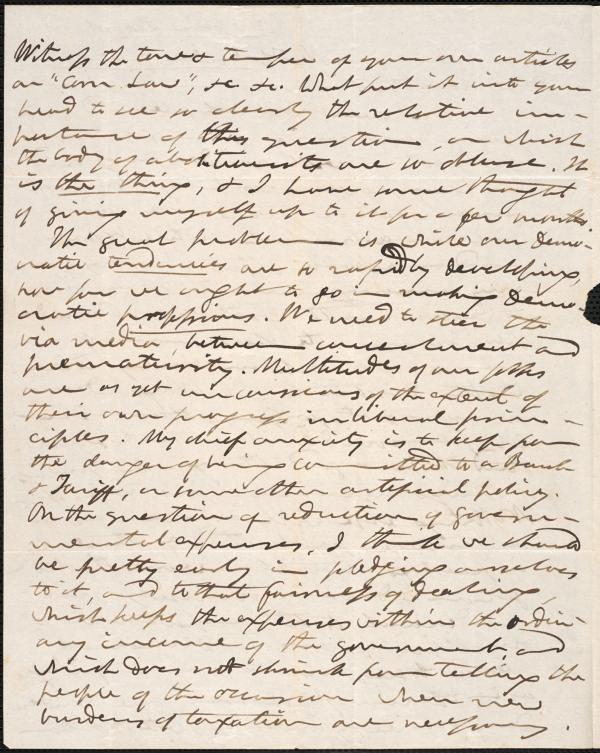 Witness the tone & temper of your own articles
on "Corn Law", &c &c. What put it into your
head to see so clearly the relative im-
portance of this question, on which
the body of abolitionists are so obtuse. It
is the thing, & I have some thought
of giving myself up to it for a few months.
The great problem is, while our Demo-
cratic tendencies are so rapidly developing,
how far we ought to go in making Demo-
cratic professions. We need to steer the
via media, between and
prematurity. Multitudes of our folks
are as yet unconscious of the extent of
their own progress in liberal prin-
ciples. My chief anxiety is to keep from
the danger of being committed to a Bank
& Tariff, or some other artificial policy.
On the question of reduction of govern-
mental expenses, I think we should
be pretty early in pledging ourselves
to it, and to that fairness of dealing,
which keeps the expenses within the ordin-
ary income of the government, and
which does not shrink from telling the
people of the occasion when new
burdens of taxation are necessary.